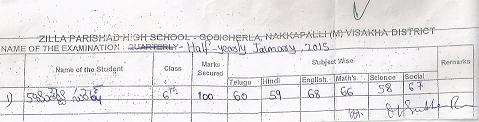 ZILLA PARISHAD HIGH SCHOOL - GODICHERLA, NAKKAPALLI (M) VISAKHA DISTRICT
NAME OF THE EXAMINATION : QUARTERLY- Half-yearly January 2015
Name of the Student Class Marks Secured Subject Wise Remarks
Telugu Hindi English. Math's. Science Social
1) 6th 100 60 59 68 66 58 67